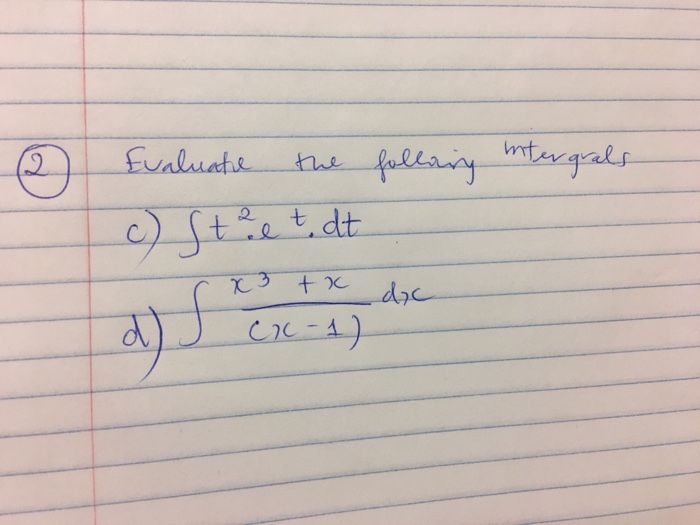 2 Evaluate the following intergrals
c) ∫t².eᵗ.dt
d) ∫ x³ + x / (x - 1) dx